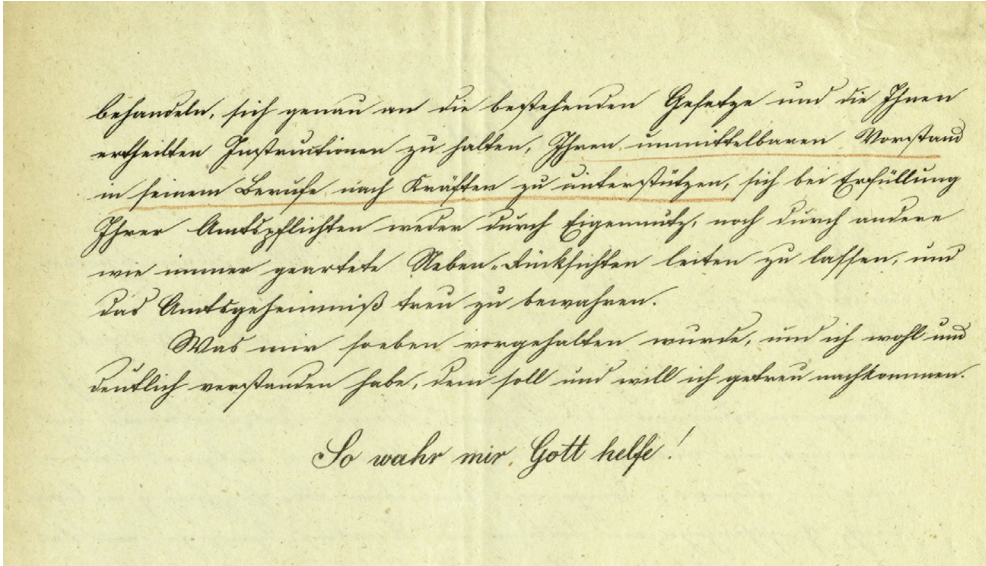 behandeln, sich genau an die bestehenden Gesetze und die Ihnen
ertheilten Instructionen zu halten, Ihren unmittelbaren Vorstand
in seinem Berufe nach Kräften zu unterstützen, sich bei Erfüllung
Ihrer Amtspflichten weder durch Eigennutz, noch durch andere
wie immer geartete Neben-Rücksichten leiten zu lassen, und
das Amtsgeheimniß treu zu bewahren.
Was mir soeben vorgehalten wurde, und ich wohl und
deutlich verstanden habe, dem soll und will ich getreu nachkommen.
So wahr mir Gott helfe!